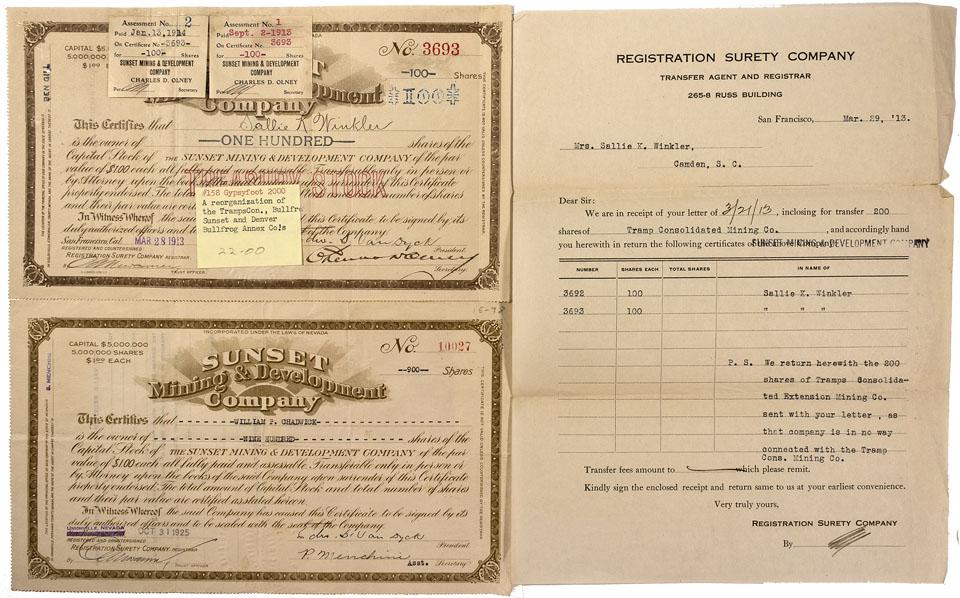 Assessment No. 2
Paid Jan. 13, 1914
On Certificate No. -3693-
for -100- Shares
SUNSET MINING & DEVELOPMENT
COMPANY
CHARLES D. OLNEY
Per Secretary
Assessment No. 1
Paid Sept. 2-1913
On Certificate No. 3693
for -100- Shares
SUNSET MINING & DEVELOPMENT
COMPANY
CHARLES D. OLNEY
Per Secretary
CAPITAL $5,
5,000,000
$1.00
No. 3693
-100- Shares
$100$
Company
This Certifies that Sallie K. Winkler
is the owner of ONE HUNDRED shares of the
Capital Stock of THE SUNSET MINING & DEVELOPMENT COMPANY of the par
value of $1.00 each all fully paid
in person or
by Attorney upon the
this Certificate
properly endorsed. The total
number of shares
and their par value are
TREASURY STOCK
#158 Gypsyfoot 2000
A reorganization of
the TrampsCon., Bullfrog
Sunset and Denver
Bullfrog Annex Co's
22.00
In Witness Whereof the said
this Certificate to be signed by its
duly authorized officers and to be sealed
the Company.
San Francisco, Cal. MAR 28 1913
REGISTERED AND COUNTERSIGNED:
REGISTRATION SURETY COMPANY, REGISTRAR
By TRUST OFFICER.
Van Dyck
President.
Secretary.
INCORPORATED UNDER THE LAWS OF NEVADA
CAPITAL $5,000,000
5,000,000 SHARES
$1.00 EACH
No. 10027
--900-- Shares
SUNSET
Mining & Development
Company
This Certifies that WILLIAM P. CHADWICK
is the owner of NINE HUNDRED shares of the
Capital Stock of THE SUNSET MINING & DEVELOPMENT COMPANY of the par
value of $1.00 each all fully paid and assessable. Transferable only in person or
by Attorney upon the books of the said Company upon surrender of this Certificate
properly endorsed. The total amount of Capital Stock and total number of shares
and their par value are certified as stated hereon.
In Witness Whereof the said Company has caused this Certificate to be signed by its
duly authorized officers and to be sealed with the seal of the Company.
UNIONVILLE, NEVADA OCT 31 1925
REGISTERED AND COUNTERSIGNED
REGISTRATION SURETY COMPANY, REGISTRAR
By TRUST OFFICER
Van Dyck
President
P. Menchini
Asst. Secretary
REGISTRATION SURETY COMPANY
TRANSFER AGENT AND REGISTRAR
265-8 RUSS BUILDING
San Francisco, Mar. 29, '13.
Mrs. Sallie K. Winkler,
Camden, S. C.
Dear Sir:
We are in receipt of your letter of 3/21/13, inclosing for transfer 200
shares of Tramp Consolidated Mining Co. and accordingly hand
you herewith in return the following certificates of SUNSET MINING & DEVELOPMENT COMPANY
NUMBER SHARES EACH TOTAL SHARES IN NAME OF
3692 100 Sallie K. Winkler
3693 100 " " "
P. S. We return herewith the 200
shares of Tramps Consolida-
ted Extension Mining Co.
sent with your letter , as
that company is in no way
connected with the Tramp
Cons. Mining Co.
Transfer fees amount to which please remit.
Kindly sign the enclosed receipt and return same to us at your earliest convenience.
Very truly yours,
REGISTRATION SURETY COMPANY
By